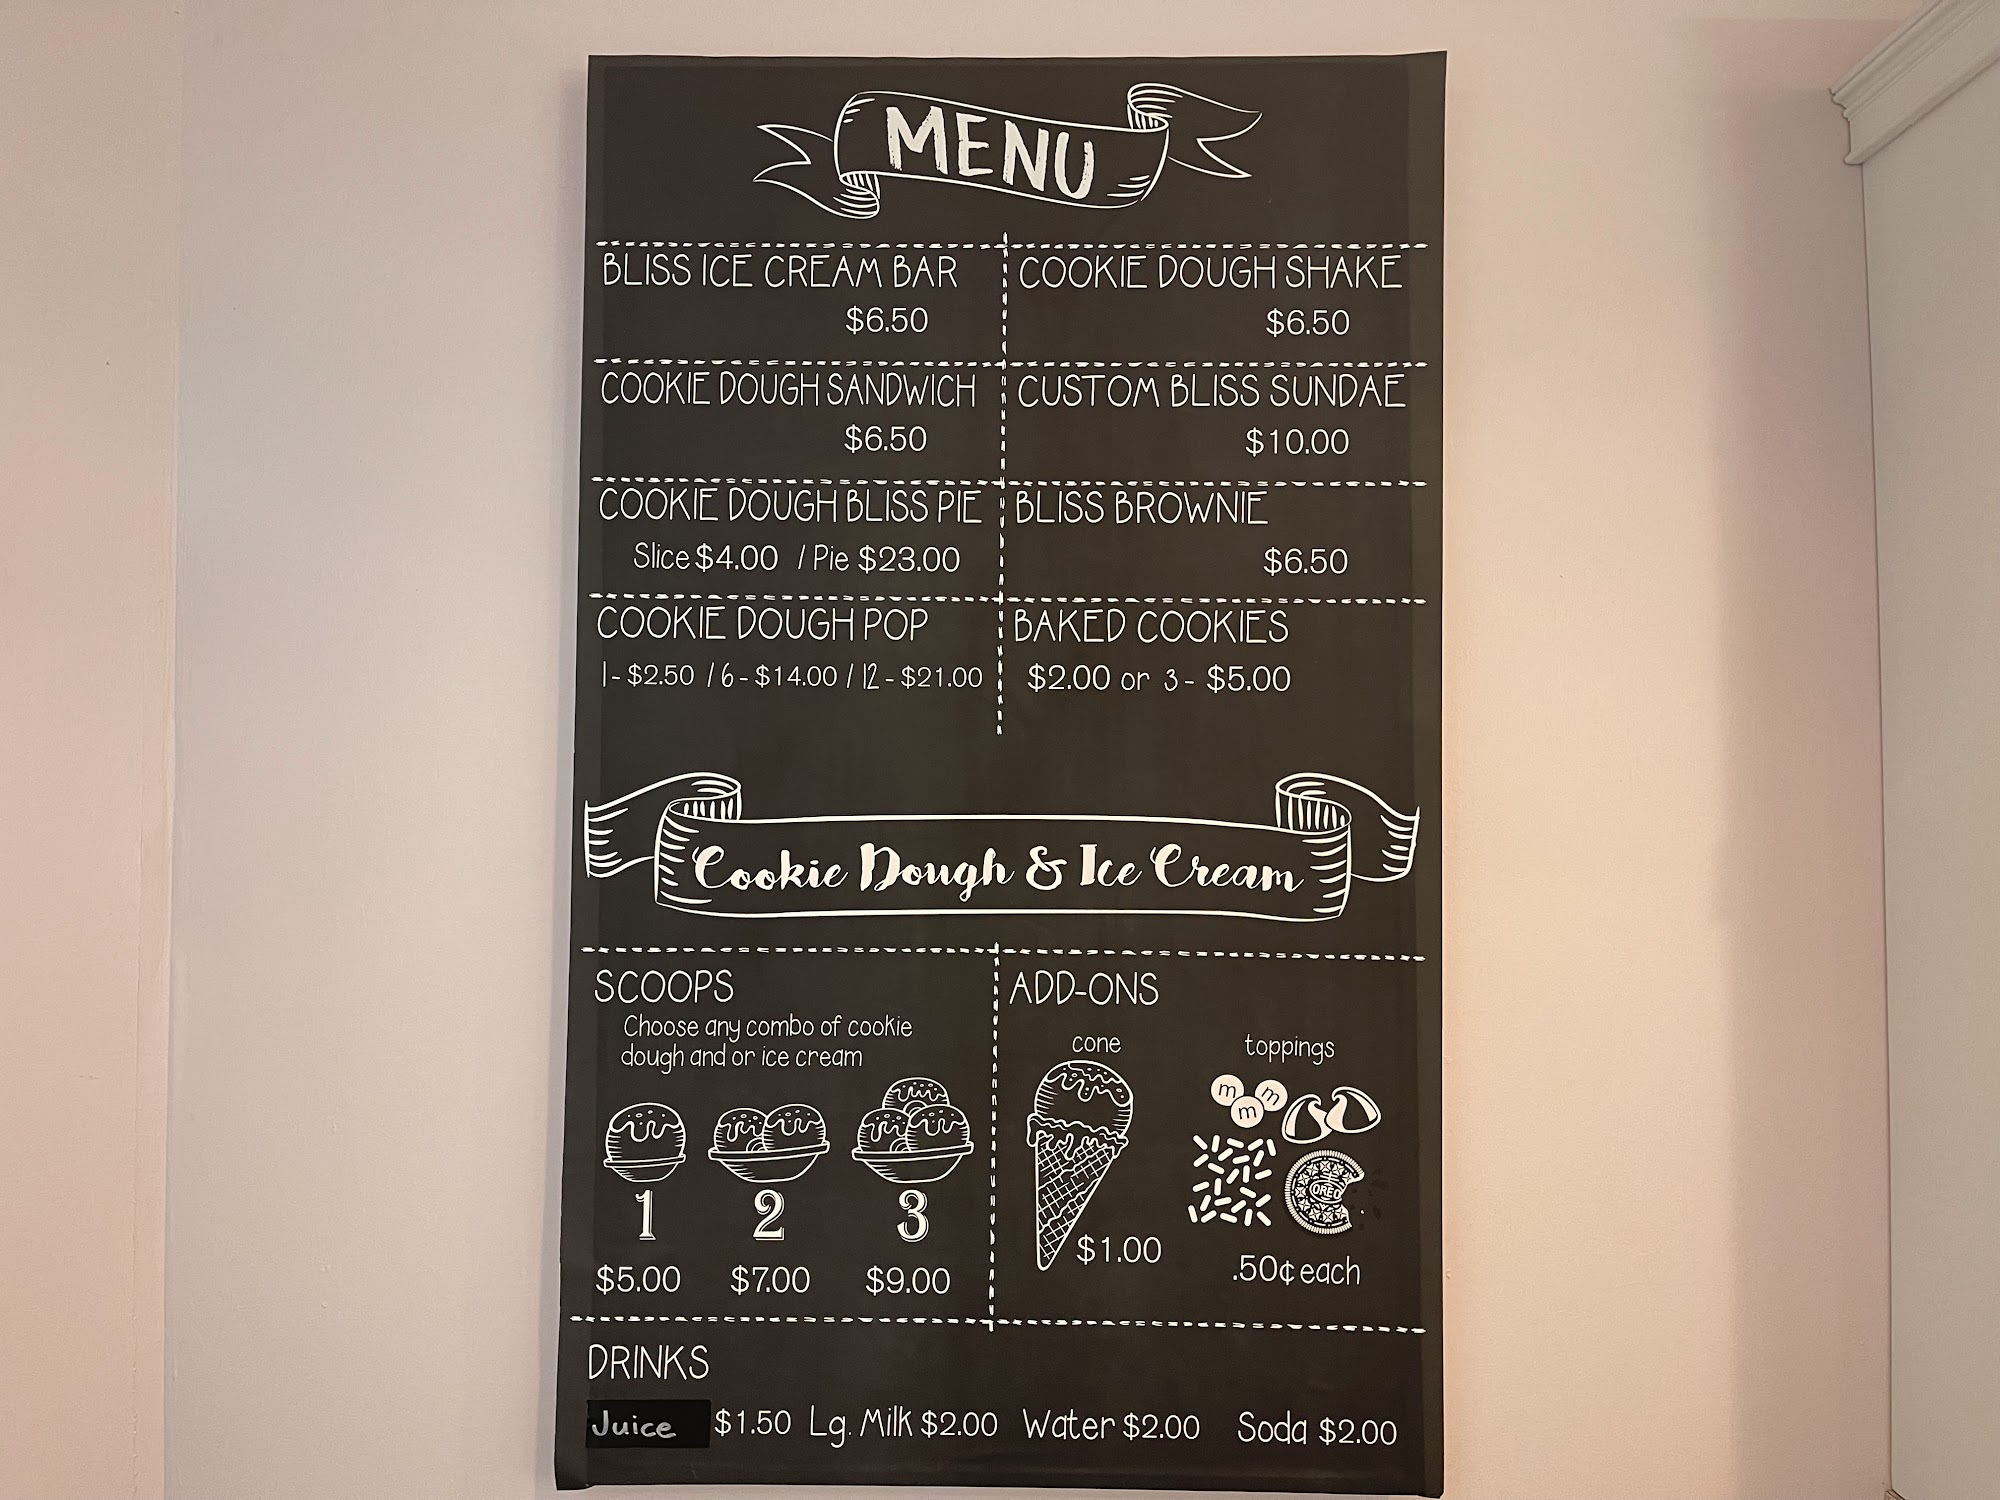 MENU
BLISS ICE CREAM BAR
$6.50
COOKIE DOUGH SHAKE
$6.50
COOKIE DOUGH SANDWICH
$6.50
CUSTOM BLISS SUNDAE
$10.00
COOKIE DOUGH BLISS PIE
Slice $4.00 / Pie $23.00
BLISS BROWNIE
$6.50
COOKIE DOUGH POP
1- $2.50 / 6 - $14.00 / 12 - $21.00
BAKED COOKIES
$2.00 or 3 - $5.00
Cookie Dough & Ice Cream
SCOOPS
Choose any combo of cookie
dough and or ice cream
1 2 3
$5.00 $7.00 $9.00
ADD-ONS
cone
$1.00
toppings
m m
m
OREO
.50¢ each
DRINKS
Juice $1.50 Lg. Milk $2.00 Water $2.00 Soda $2.00